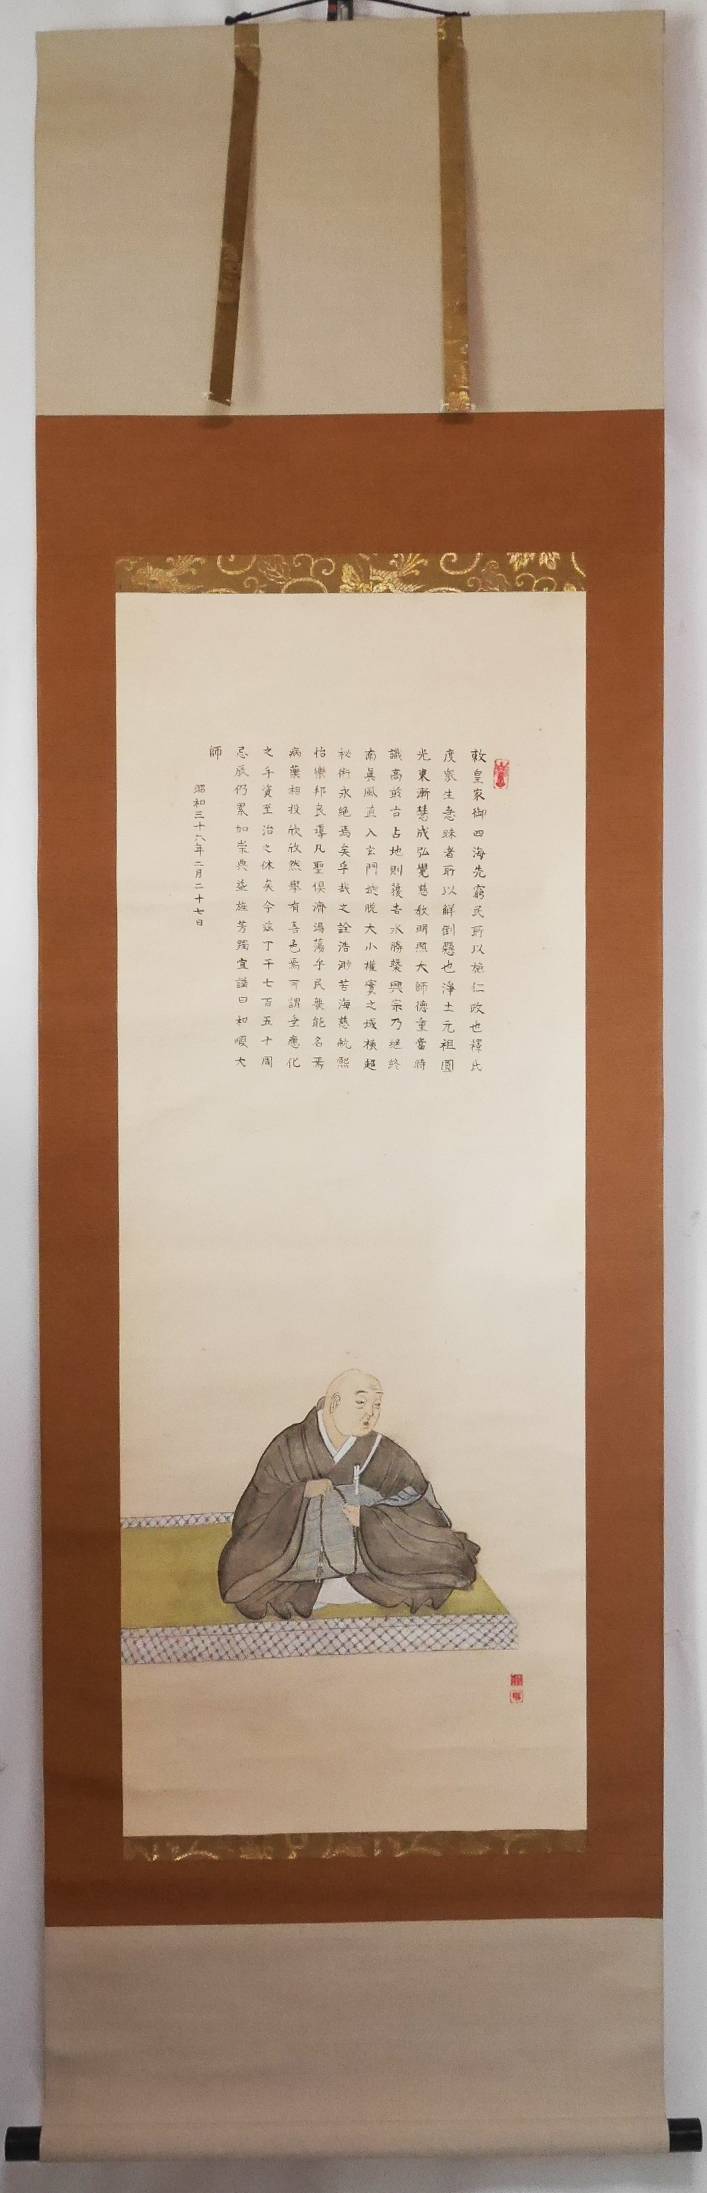 敕皇家御四海先窮民所以施仁政也釋氏
度衆生急昧者所以解倒懸也淨土元祖圓
光東漸慧成弘覺慈教明照大師德重當時
識高前古占地則覆吉水勝槩興宗乃紹終
南眞風直入玄門地脱大小權實之域極超
祕術永絶焉矣乎哉之詮浩渺苦海慈航熙
怡樂邦良導凡聖俱濟蕩蕩乎民無能名焉
病藥相投欣欣然擧有喜色焉可謂垂應化
之手資至治之休矣今玆丁于七百五十周
忌辰仍累加崇典益旌芳躅宜諡曰和順大
師
昭和三十六年二月二十七日